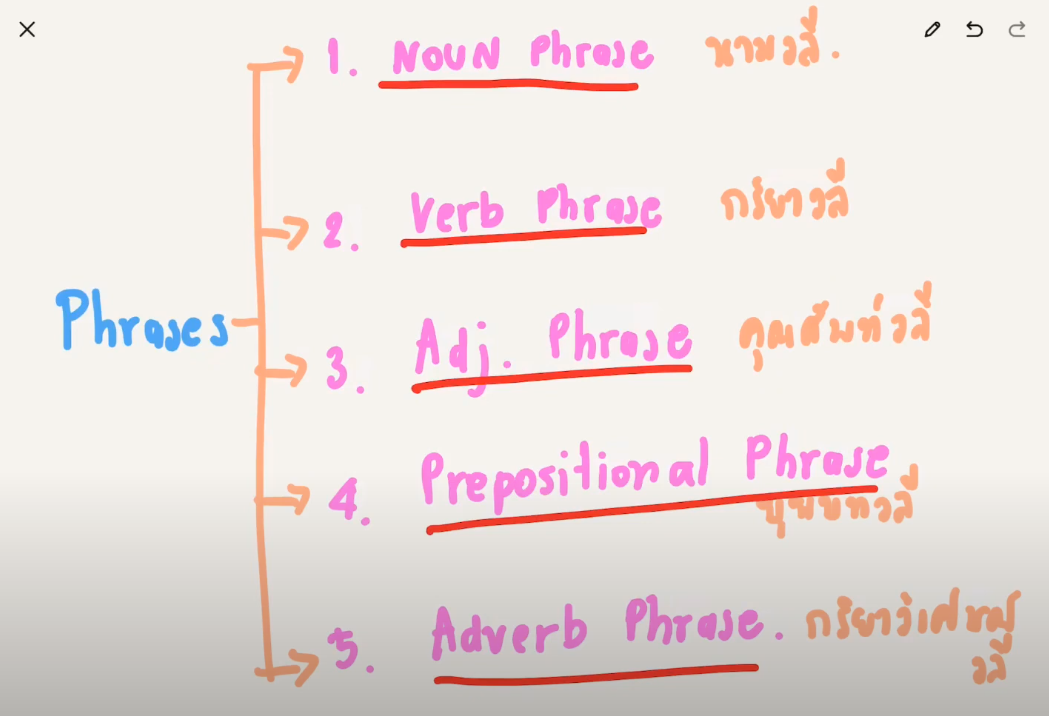 1. Noun Phrase นามวลี.
2. Verb Phrase กริยาวลี
Phrases
3. Adj. Phrase คุณศัพท์วลี
4. Prepositional Phrase
บุพบทวลี
5. Adverb Phrase. กริยาวิเศษณ์
วลี